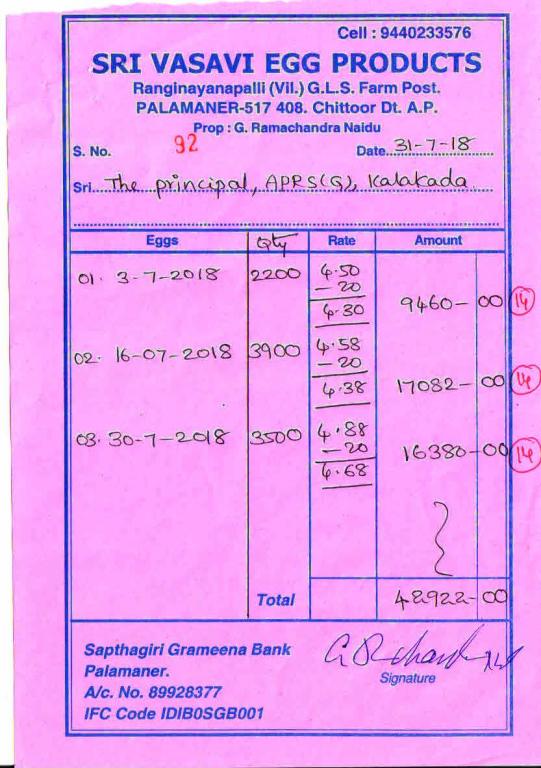 Cell : 9440233576
SRI VASAVI EGG PRODUCTS
Ranginayanapalli (Vil.) G.L.S. Farm Post.
PALAMANER-517 408. Chittoor Dt. A.P.
Prop : G. Ramachandra Naidu
S. No. 92 Date 31-7-18
Sri The principal, APRS(G), Kalakada
Eggs Qty Rate Amount
01. 3-7-2018 2200 4.50
- 20
4.30 9460-00 14
02. 16-07-2018 3900 4.58
- 20
4.38 17082-00 14
03. 30-7-2018 3500 4.88
- 20
4.68 16380-00 14
Total 42922-00
Sapthagiri Grameena Bank
Palamaner.
A/c. No. 89928377
IFC Code IDIB0SGB001
Signature